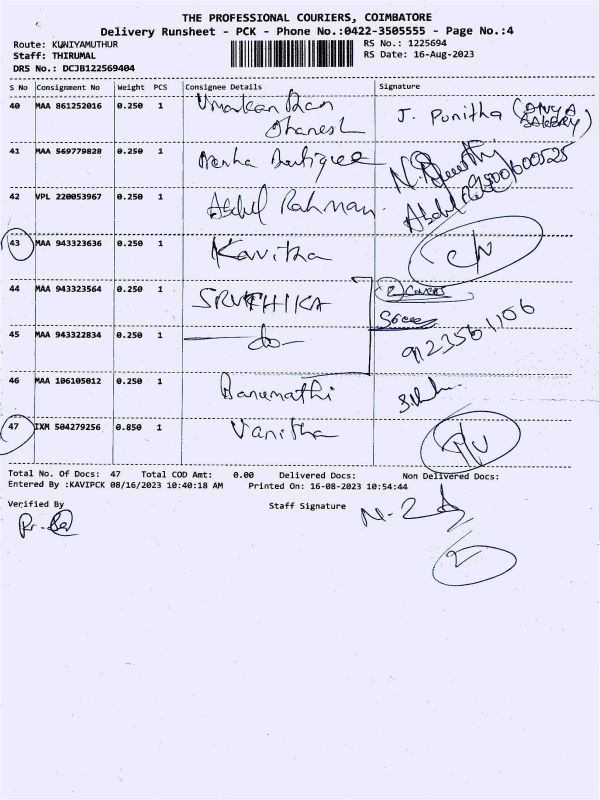 THE PROFESSIONAL COURIERS, COIMBATORE
Delivery Runsheet - PCK - Phone No.:0422-3505555 - Page No.:4
Route: KUNIYAMUTHUR RS No.: 1225694
Staff: THIRUMAL RS Date: 16-Aug-2023
DRS No.: DCJB122569404
S No Consignment No Weight PCS Consignee Details Signature
40 MAA 861252016 0.250 1 Dhanesh J. Punitha
41 MAA 569779828 0.250 1 Boutique
42 VPL 220053967 0.250 1 Abdul Rahman Abdul 9500600525
43 MAA 943323636 0.250 1 Kavitha
44 MAA 943323564 0.250 1 SRUTHIKA 2 covers
45 MAA 943322834 0.250 1 -do- 9123561106
46 MAA 106105012 0.250 1 Banumathi
47 IXM 504279256 0.850 1 Vanitha
Total No. Of Docs: 47 Total COD Amt: 0.00 Delivered Docs: Non Delivered Docs:
Entered By :KAVIPCK 08/16/2023 10:40:18 AM Printed On: 16-08-2023 10:54:44
Verified By Staff Signature
2